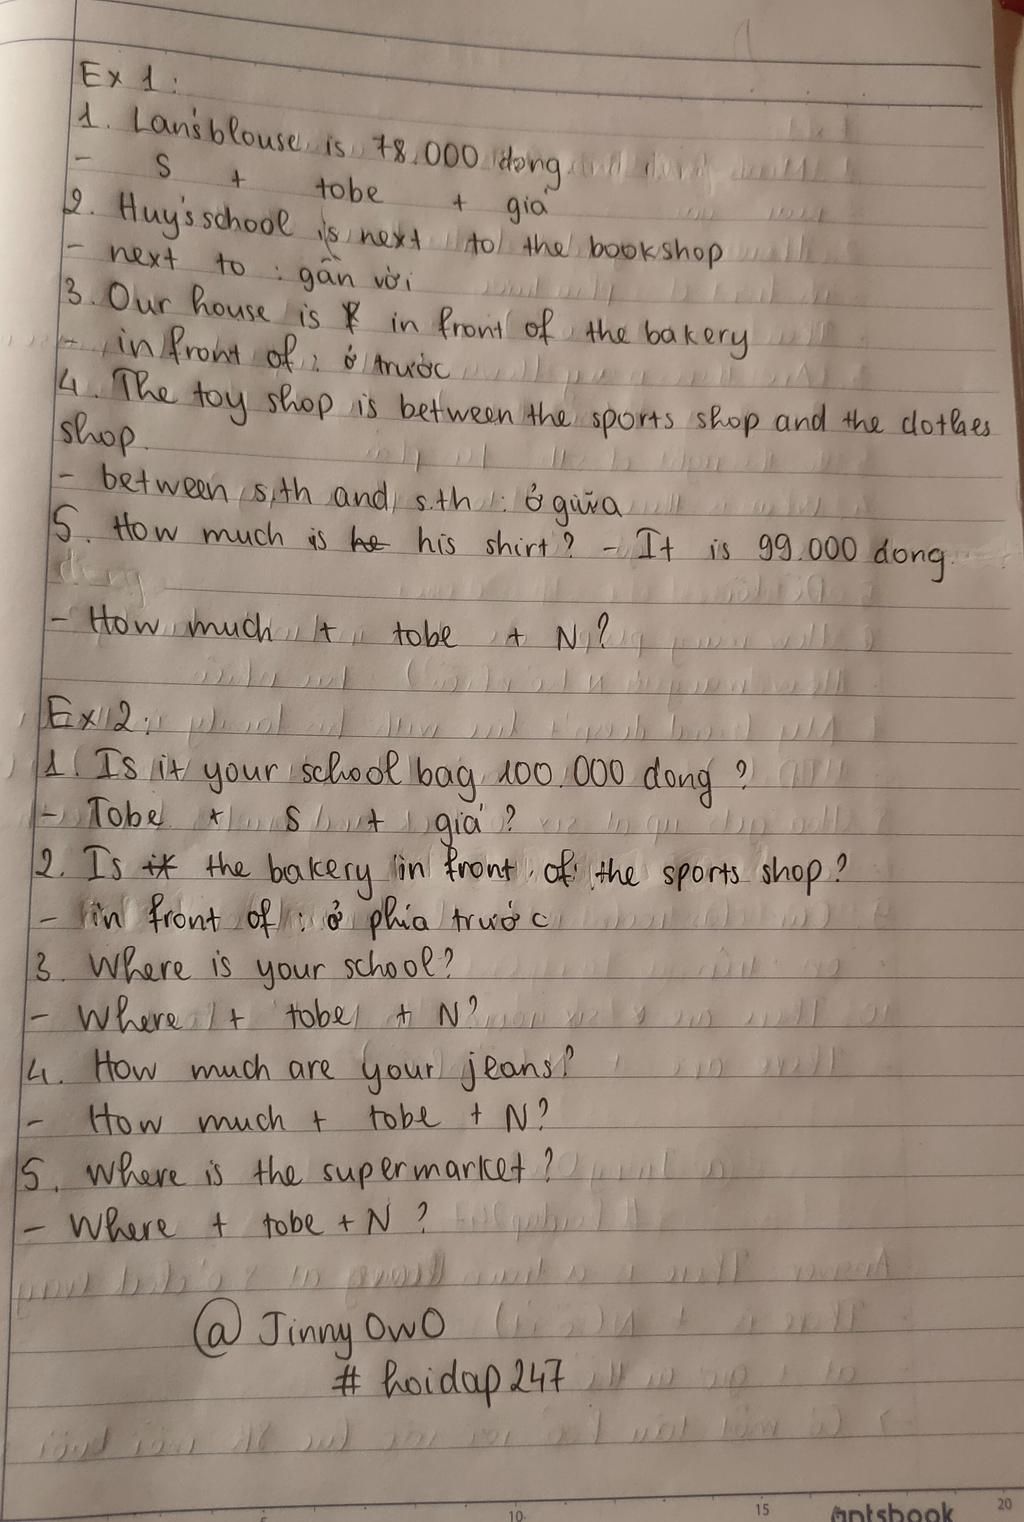 Ex 1:
1. Lan's blouse is 78.000 dong
- S + tobe + giá
2. Huy's school is next to the bookshop
- next to : gần với
3. Our house is in front of the bakery
- in front of : ở trước
4. The toy shop is between the sports shop and the clothes
shop.
- between s.th and s.th : ở giữa
5. How much is he his shirt? - It is 99.000 dong
dong
- How much + tobe + N?
Ex 2:
1. Is it your school bag 100.000 dong ?
- Tobe + S + giá ?
2. Is it the bakery in front of the sports shop?
- in front of : ở phía trước
3. Where is your school?
- Where + tobe + N?
4. How much are your jeans?
- How much + tobe + N?
5. Where is the supermarket ?
- Where + tobe + N ?
@ Jinny OwO
# hoidap247
10 15 antsbook 20